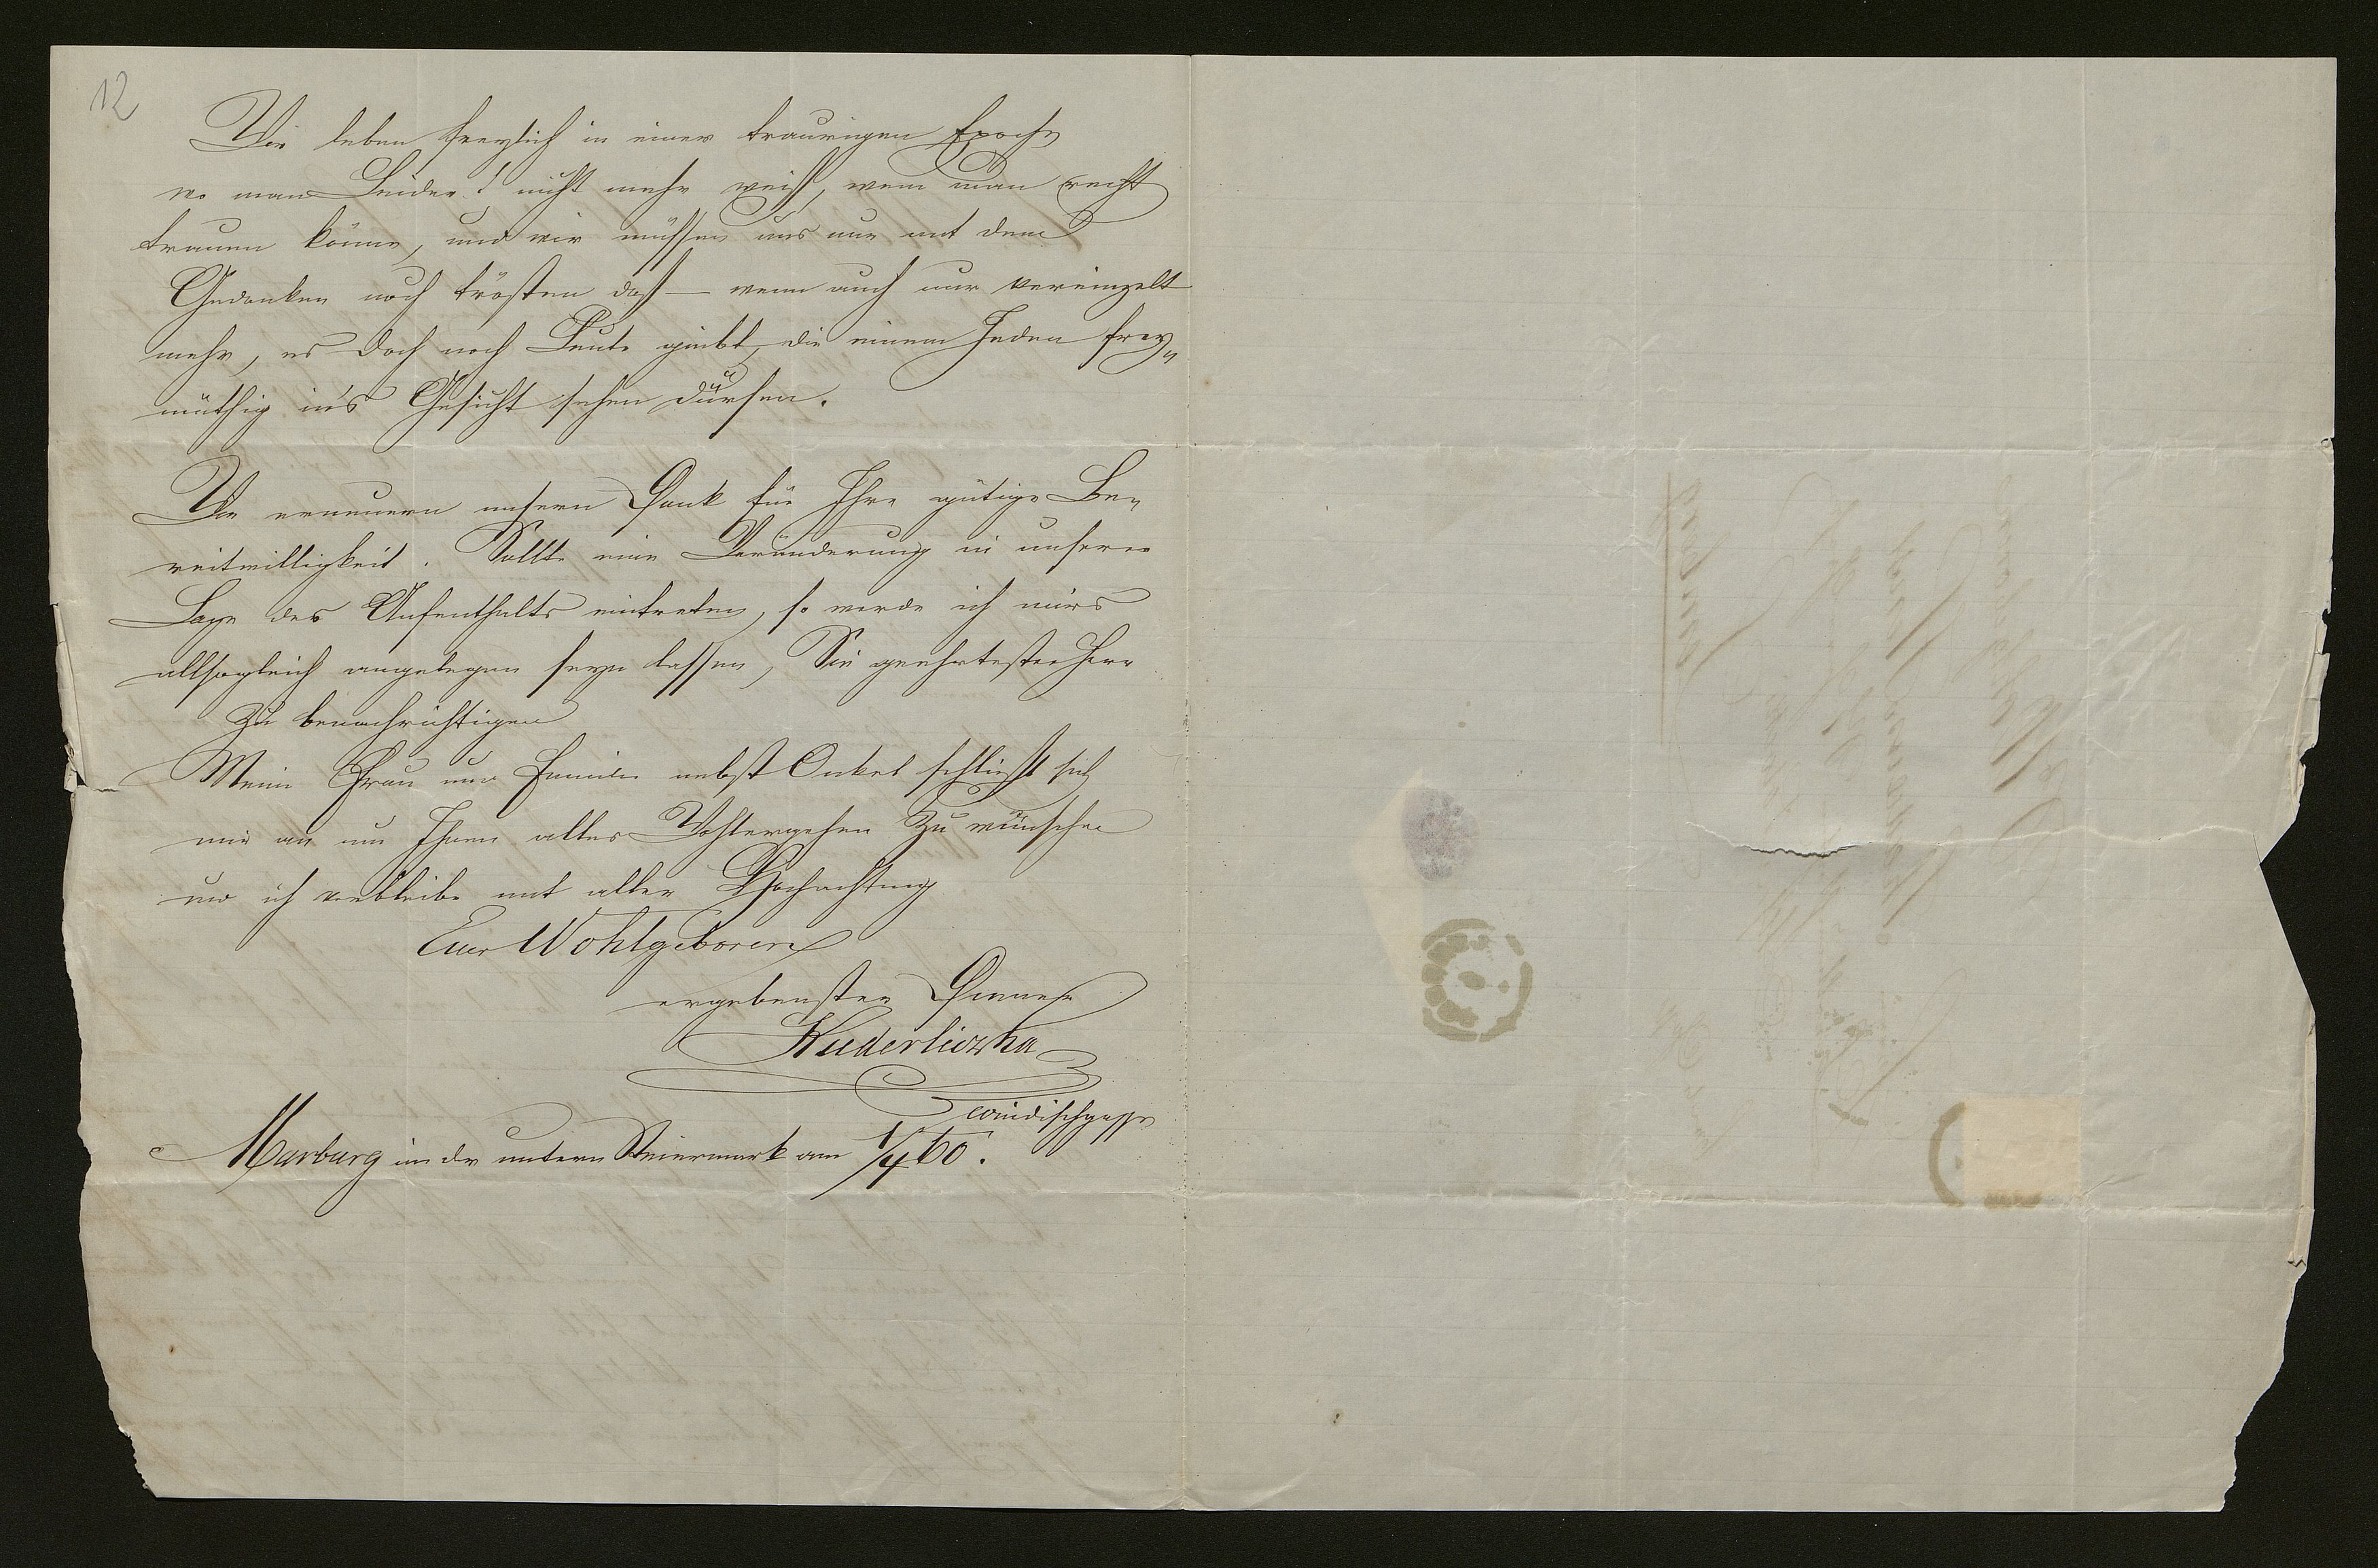 12
Wir leben freylich in einer traurigen Epoche
wo man Leider! nicht mehr weiß, wem man recht
trauen könne, und wir müssen uns nur mit dem
Gedanken noch trösten daß — wenn auch nur vereinzelt
mehr, es doch noch Leute giebt, die einem Jeden frey„
müthig in's Gesicht sehen dürfen.
Wir erneuern unsern Dank für Ihre gütige Be„
reitwilligkeit. Sollte eine Veränderung in unserer
Lage des Aufenthalts eintreten, so werde ich mirs
allsogleich angelegen seyn lassen, Sie geehrtester Herr
zu benachrichtigen
Meine Frau und Familie nebst Onkel schließt sich
mir an um Ihnen alles Wohlergehen zu wünschen
und ich verbleibe mit aller Hochachtung
Euer Wohlgeboren
ergebenster Diener
Kuderliczka
windischgasse
Marburg in der untern Steiermark am 1/4 60.